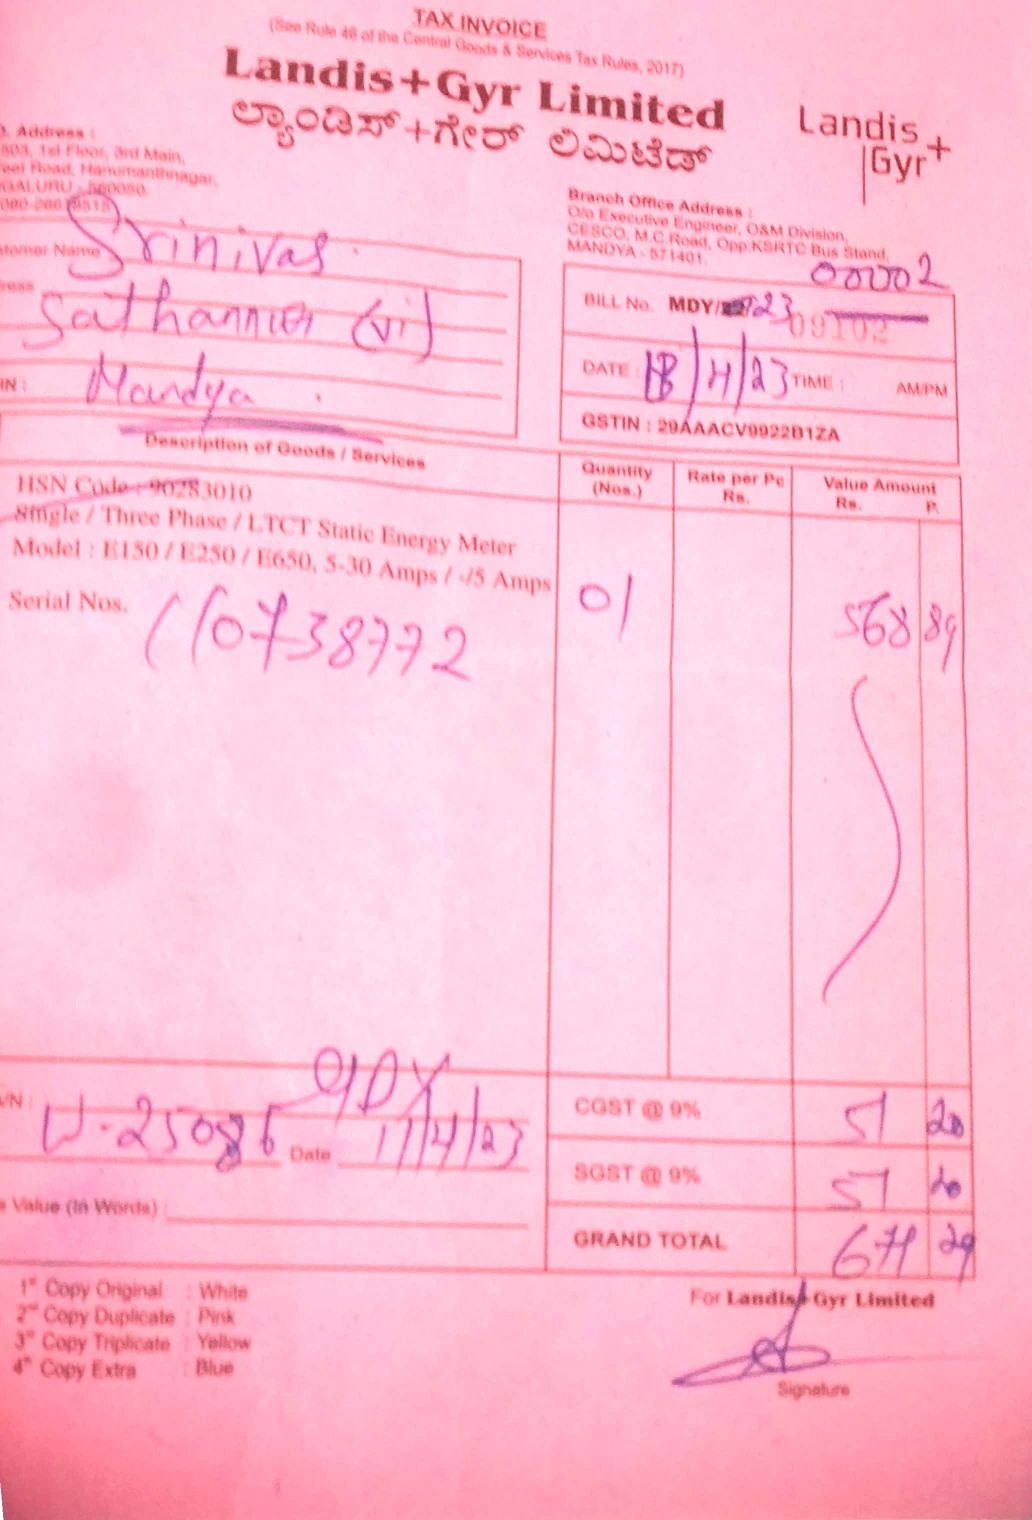 TAX INVOICE
(See Rule 46 of the Central Goods & Services Tax Rules, 2017)
Landis+Gyr Limited
ಲ್ಯಾಂಡಿಸ್+ಗೇರ್ ಲಿಮಿಟೆಡ್
Landis
Gyr+
Address :
1st Floor, 3rd Main,
Road, Hanumanthnagar,
GALURU - 560050.
Branch Office Address :
O/o Executive Engineer, O&M Division,
CESCO, M.C.Road, Opp.KSRTC Bus Stand,
MANDYA - 571401.
stomer Name Srinivas
ress
(vi)
IN : Mandya
00002
BILL No. MDY/ /23 09102
DATE : 18/4/23 TIME : AM/PM
GSTIN : 29AAACV9922B1ZA
Description of Goods / Services
Quantity (Nos.)
Rate per Pc Rs.
Value Amount Rs. P.
HSN Code : 90283010
Single / Three Phase / LTCT Static Energy Meter
Model : E150 / E250 / E650, 5-30 Amps / -/5 Amps
Serial Nos. 110738772 01 568 89
/N : W-25086 Date 17/4/23
MDY
CGST @ 9% 51 20
SGST @ 9% 51 20
Value (In Words)
GRAND TOTAL 671 29
1st Copy Original : White
2nd Copy Duplicate : Pink
3rd Copy Triplicate : Yellow
4th Copy Extra : Blue
For Landis+Gyr Limited
Signature